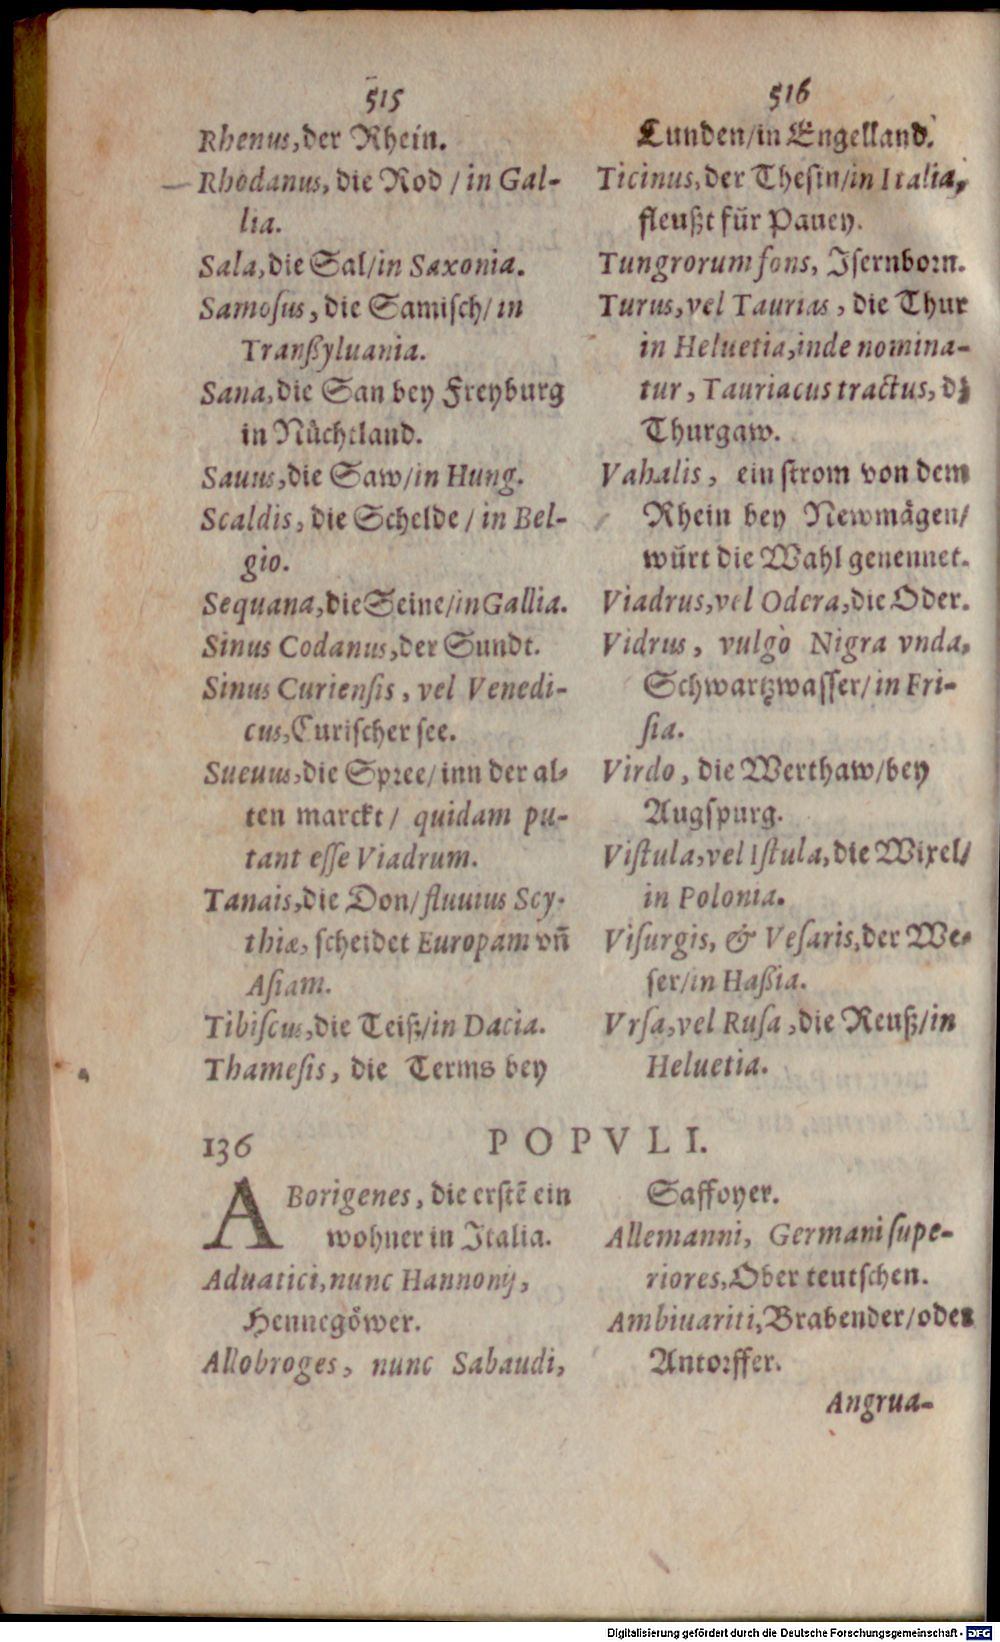 515
Rhenus, der Rhein.
Rhodanus, die Rod / in Gal-
lia.
Sala, die Sal/in Saxonia.
Samosus, die Samisch/in
Tranßyluania.
Sana, die San bey Freyburg
in Nüchtland.
Sauus, die Saw/in Hung.
Scaldis, die Schelde / in Bel-
gio.
Sequana, die Seine/in Gallia.
Sinus Codanus, der Sundt.
Sinus Curiensis, vel Venedi-
cus, Curischer see.
Sueuus, die Spree/ inn der al-
ten marckt / quidam pu-
tant esse Viadrum.
Tanais, die Don/ fluuius Scy-
thiæ, scheidet Europam vñ
Asiam.
Tibiscus, die Teiß/in Dacia.
Thamesis, die Tems bey
516
Lunden/in Engelland.
Ticinus, der Thesin/in Italia,
fleußt für Pauey.
Tungrorum fons, Isernborn.
Turus, vel Taurias, die Thur
in Heluetia, inde nomina-
tur, Tauriacus tractus, dz
Thurgaw.
Vahalis, ein strom von dem
Rhein bey Newmägen/
würt die Wahl genennet.
Viadrus, vel Odera, die Oder.
Vidrus, vulgò Nigra vnda,
Schwartzwasser/ in Fri-
sia.
Virdo, die Werthaw/bey
Augspurg.
Vistula, vel Istula, die Wixel/
in Polonia.
Visurgis, & Vesaris, der We-
ser/in Haßia.
Vrsa, vel Rusa, die Reuß/in
Heluetia.
136 POPVLI.
ABorigenes, die erstē ein
wohner in Italia.
Aduatici, nunc Hannonij,
Hennegöwer.
Allobroges, nunc Sabaudi,
Saffoyer.
Allemanni, Germani supe-
riores, Ober teutschen.
Ambiuariti, Brabender/oder
Antorffer.
Angrua-
Digitalisierung gefördert durch die Deutsche Forschungsgemeinschaft - DFG